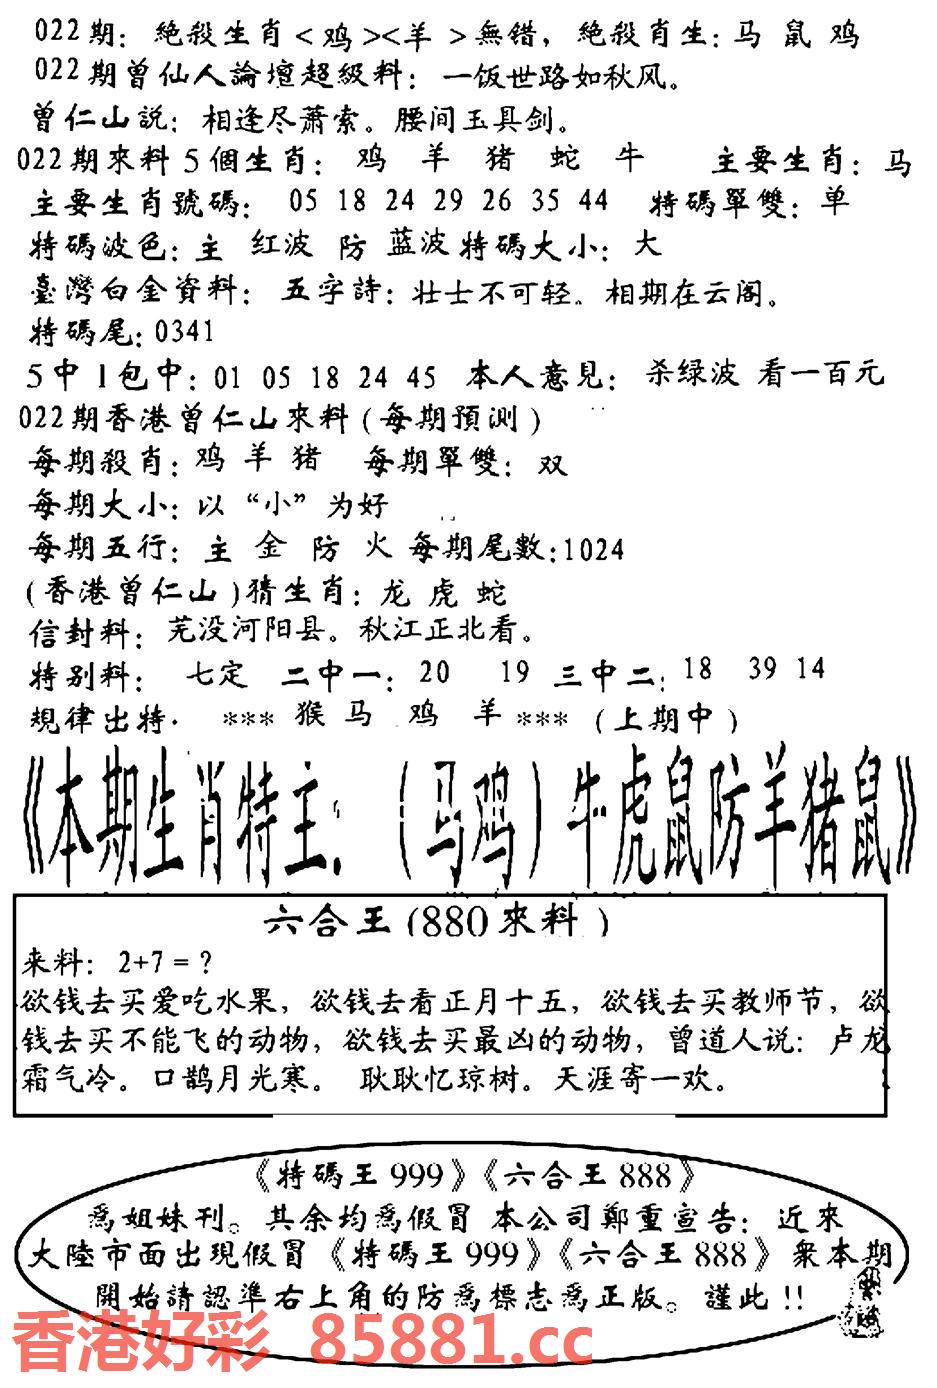 022期：絶殺生肖<鸡><羊>無错，絶殺肖生：马 鼠 鸡
022期曾仙人論壇超級料：一饭世路如秋风。
曾仁山説：相逢尽萧索。腰间玉具剑。
022期來料5個生肖：鸡 羊 猪 蛇 牛 主要生肖：马
主要生肖號碼：05 18 24 29 26 35 44 特碼單雙：单
特碼波色：主 红波 防 蓝波 特碼大小：大
臺灣白金資料：五字詩：壮士不可轻。相期在云阁。
特碼尾：0341
5中1包中：01 05 18 24 45 本人意見：杀绿波 看一百元
022期香港曾仁山來料(每期預测)
每期殺肖：鸡 羊 猪 每期單雙：双
每期大小：以“小”为好
每期五行：主 金 防 火 每期尾數：1024
(香港曾仁山)猜生肖：龙 虎 蛇
信封料：芜没河阳县。秋江正北看。
特别料：七定 二中一：20 19 三中二：18 39 14
規律出特· *** 猴 马 鸡 羊 *** (上期中)
《本期生肖特主：(马鸡)牛虎鼠防羊猪鼠》
六合王(880來料)
来料：2+7=？
欲钱去买爱吃水果，欲钱去看正月十五，欲钱去买教师节，欲
钱去买不能飞的动物，欲钱去买最凶的动物，曾道人说：卢龙
霜气冷。口鹊月光寒。 耿耿忆琼树。天涯寄一欢。
《特碼王999》《六合王888》
爲姐妹刊。其余均爲假冒 本公司鄭重宣告：近來
大陸市面出現假冒《特碼王999》《六合王888》衆本期
開始請認準右上角的防爲標志爲正版。謹此!!
香港好彩 85881.cc